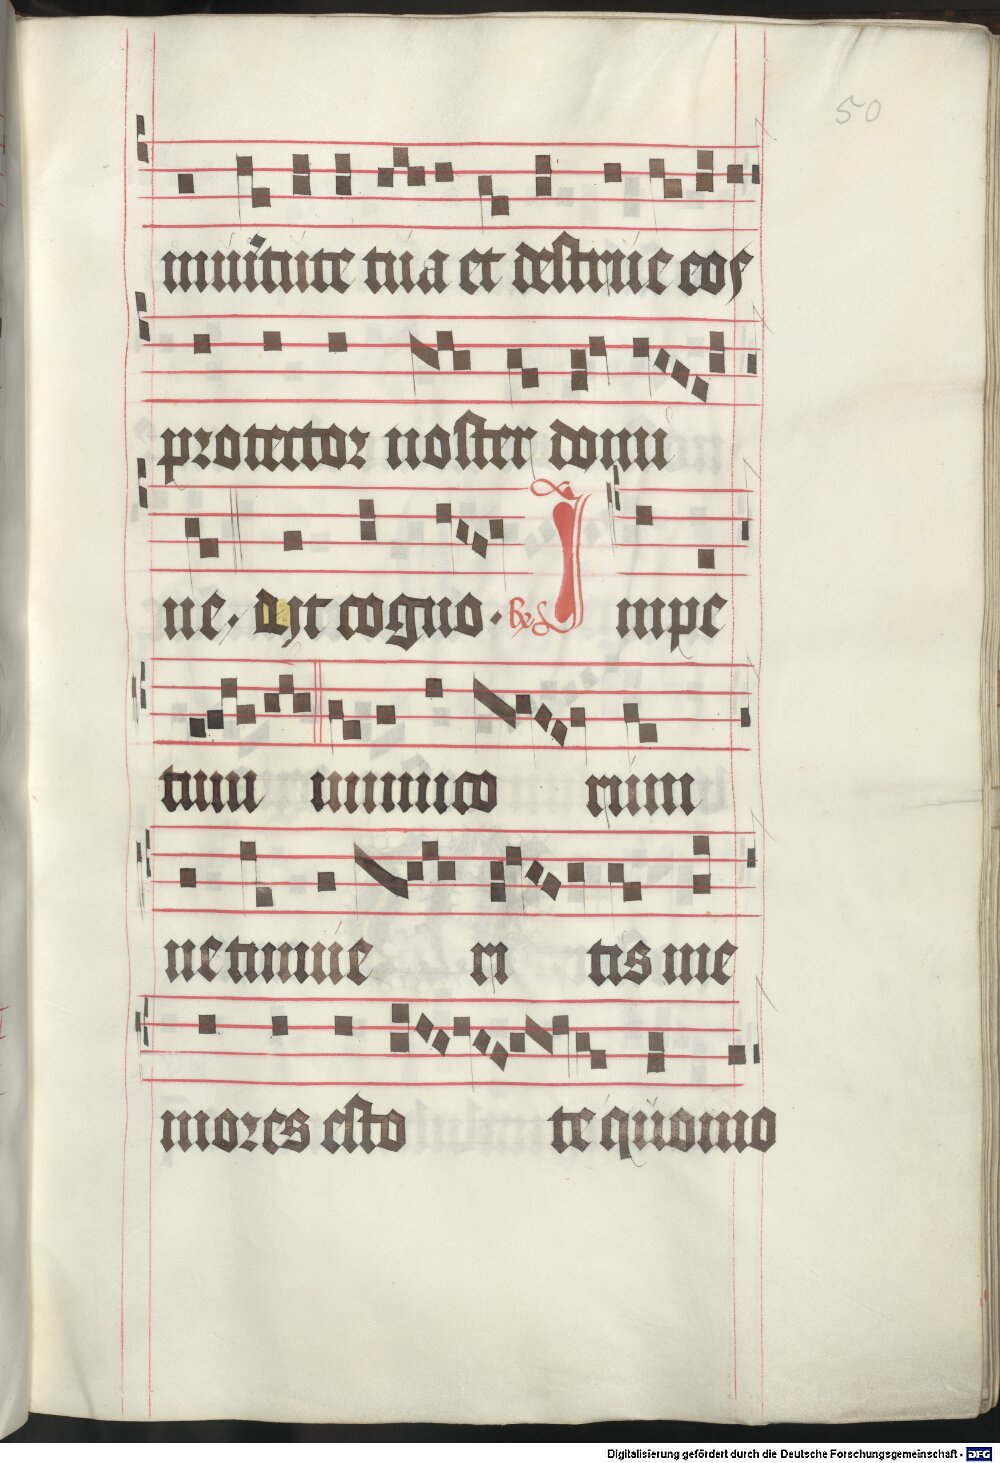 50
in virtute tua et destrue eos
protector noster domi
ne. Ut cogno. Rx Impe
tum inimico rum
ne timue ri tis me
mores esto te quomo
Digitalisierung gefördert durch die Deutsche Forschungsgemeinschaft - DFG